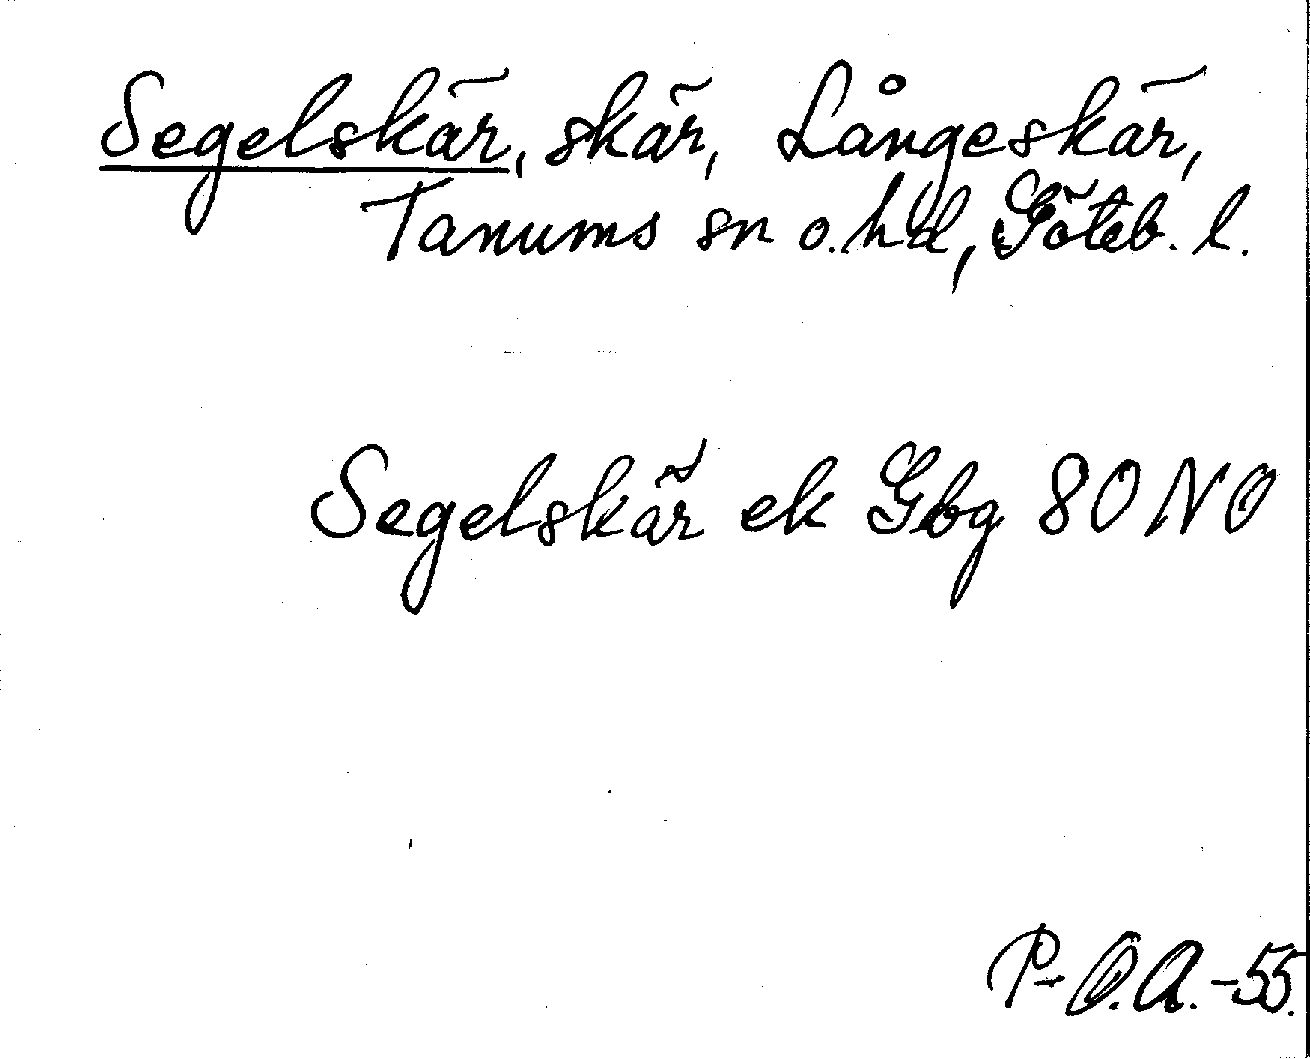 Segelskär, skär, Långeskär,
Tanums sn o. hd, Göteb. l.
Segelskär ek Gbg 80 NO
P-O.A.-55.